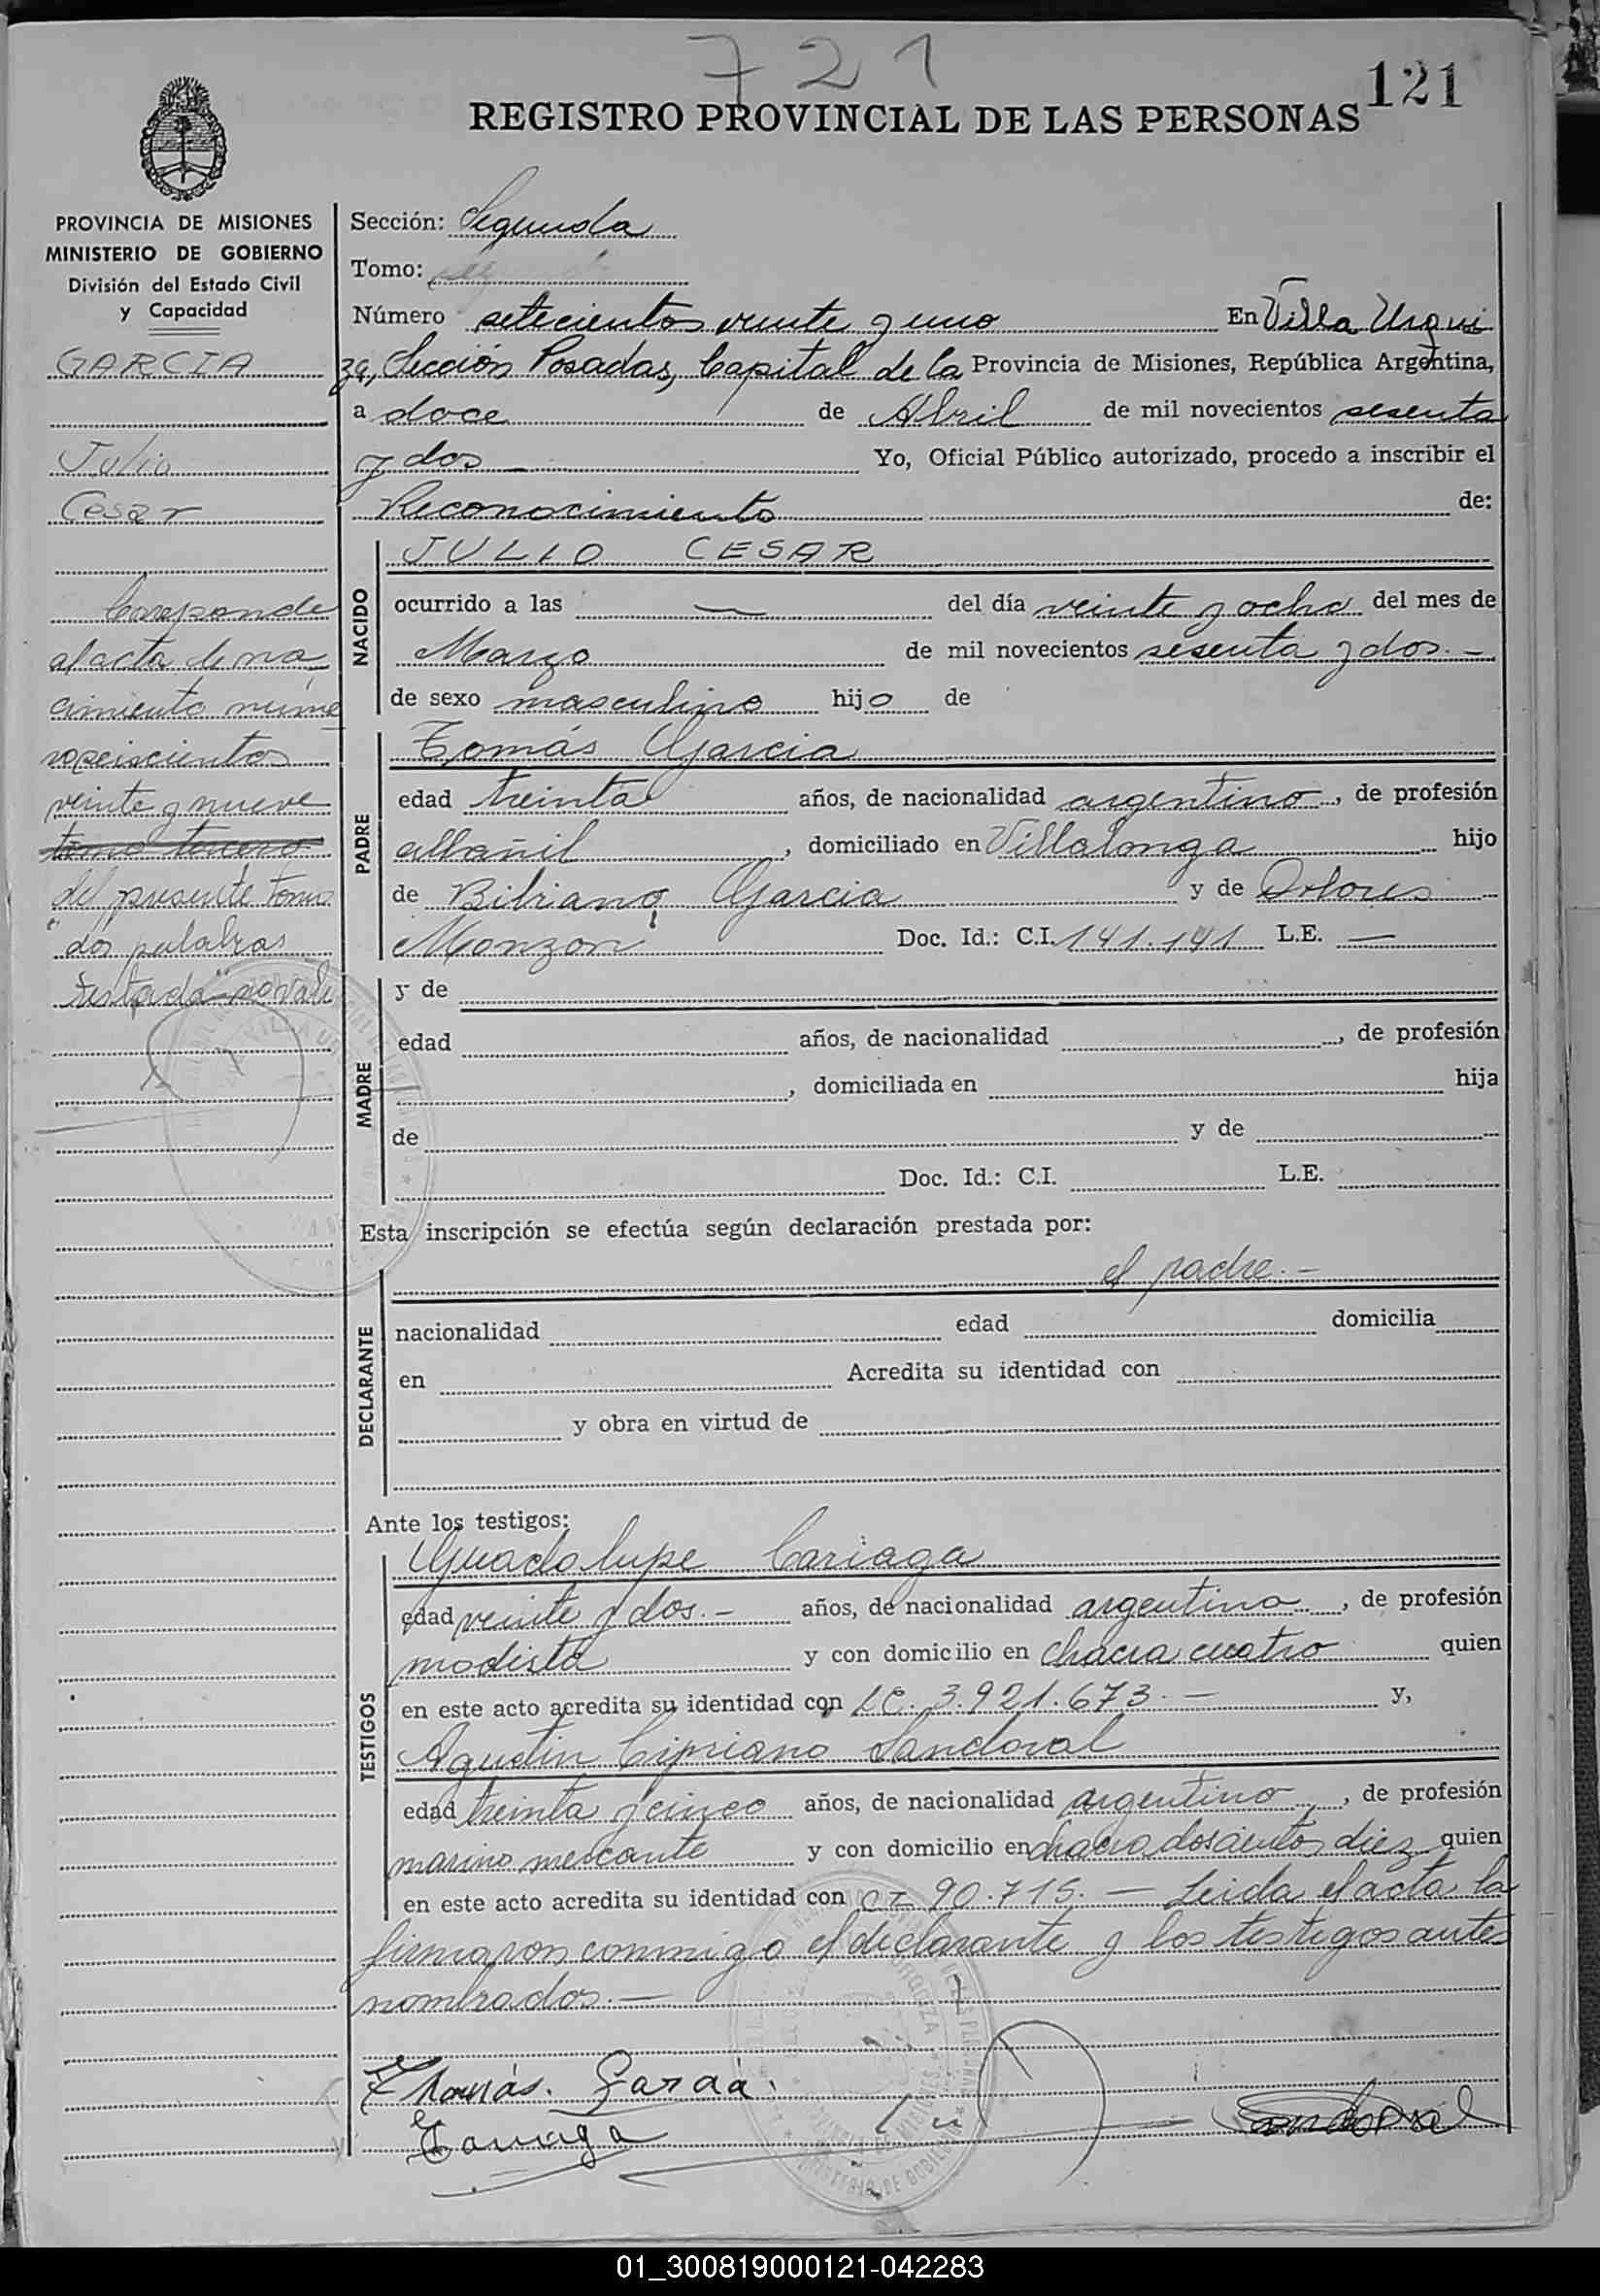 721
121
REGISTRO PROVINCIAL DE LAS PERSONAS
PROVINCIA DE MISIONES
MINISTERIO DE GOBIERNO
División del Estado Civil
y Capacidad
GARCIA
Julio
Cesar
Corresponde
al acta de na
cimiento núme
ro seiscientos
veinte y nueve
tomo tercero
del presente tomo
"dos palabras
testada" no vale
Sección: Segunda
Tomo:
Número setecientos veinte y uno En Villa Urqui
za, Sección Posadas, Capital de la Provincia de Misiones, República Argentina,
a doce de Abril de mil novecientos sesenta
y dos — Yo, Oficial Público autorizado, procedo a inscribir el
Reconocimiento de:
NACIDO
JULIO CESAR
ocurrido a las — del día veinte y ocho del mes de
Marzo de mil novecientos sesenta y dos.—
de sexo masculino hijo de
PADRE
Tomás Garcia
edad treinta años, de nacionalidad argentino, de profesión
albañil, domiciliado en Villalonga hijo
de Bibiano Garcia y de Dolores
Monzon Doc. Id.: C.I. 141.141 L.E. —
MADRE
y de
edad años, de nacionalidad , de profesión
, domiciliada en hija
de y de
Doc. Id.: C.I. L.E.
Esta inscripción se efectúa según declaración prestada por:
el padre.—
DECLARANTE
nacionalidad edad domicilia
en Acredita su identidad con
y obra en virtud de
Ante los testigos:
TESTIGOS
Guadalupe Cariaga
edad veinte y dos.— años, de nacionalidad argentina, de profesión
modista y con domicilio en chacra cuatro quien
en este acto acredita su identidad con LC. 3.921.673.— y,
Agustin Cipriano Sandoval
edad treinta y cinco años, de nacionalidad argentino, de profesión
marino mercante y con domicilio en chacra doscientos diez quien
en este acto acredita su identidad con CI 90.715.— Leida el acta la
firmaron conmigo el declarante y los testigos antes
nombrados.—
Thomás. Garcia.
Cariaga
Sandoval
01_300819000121-042283